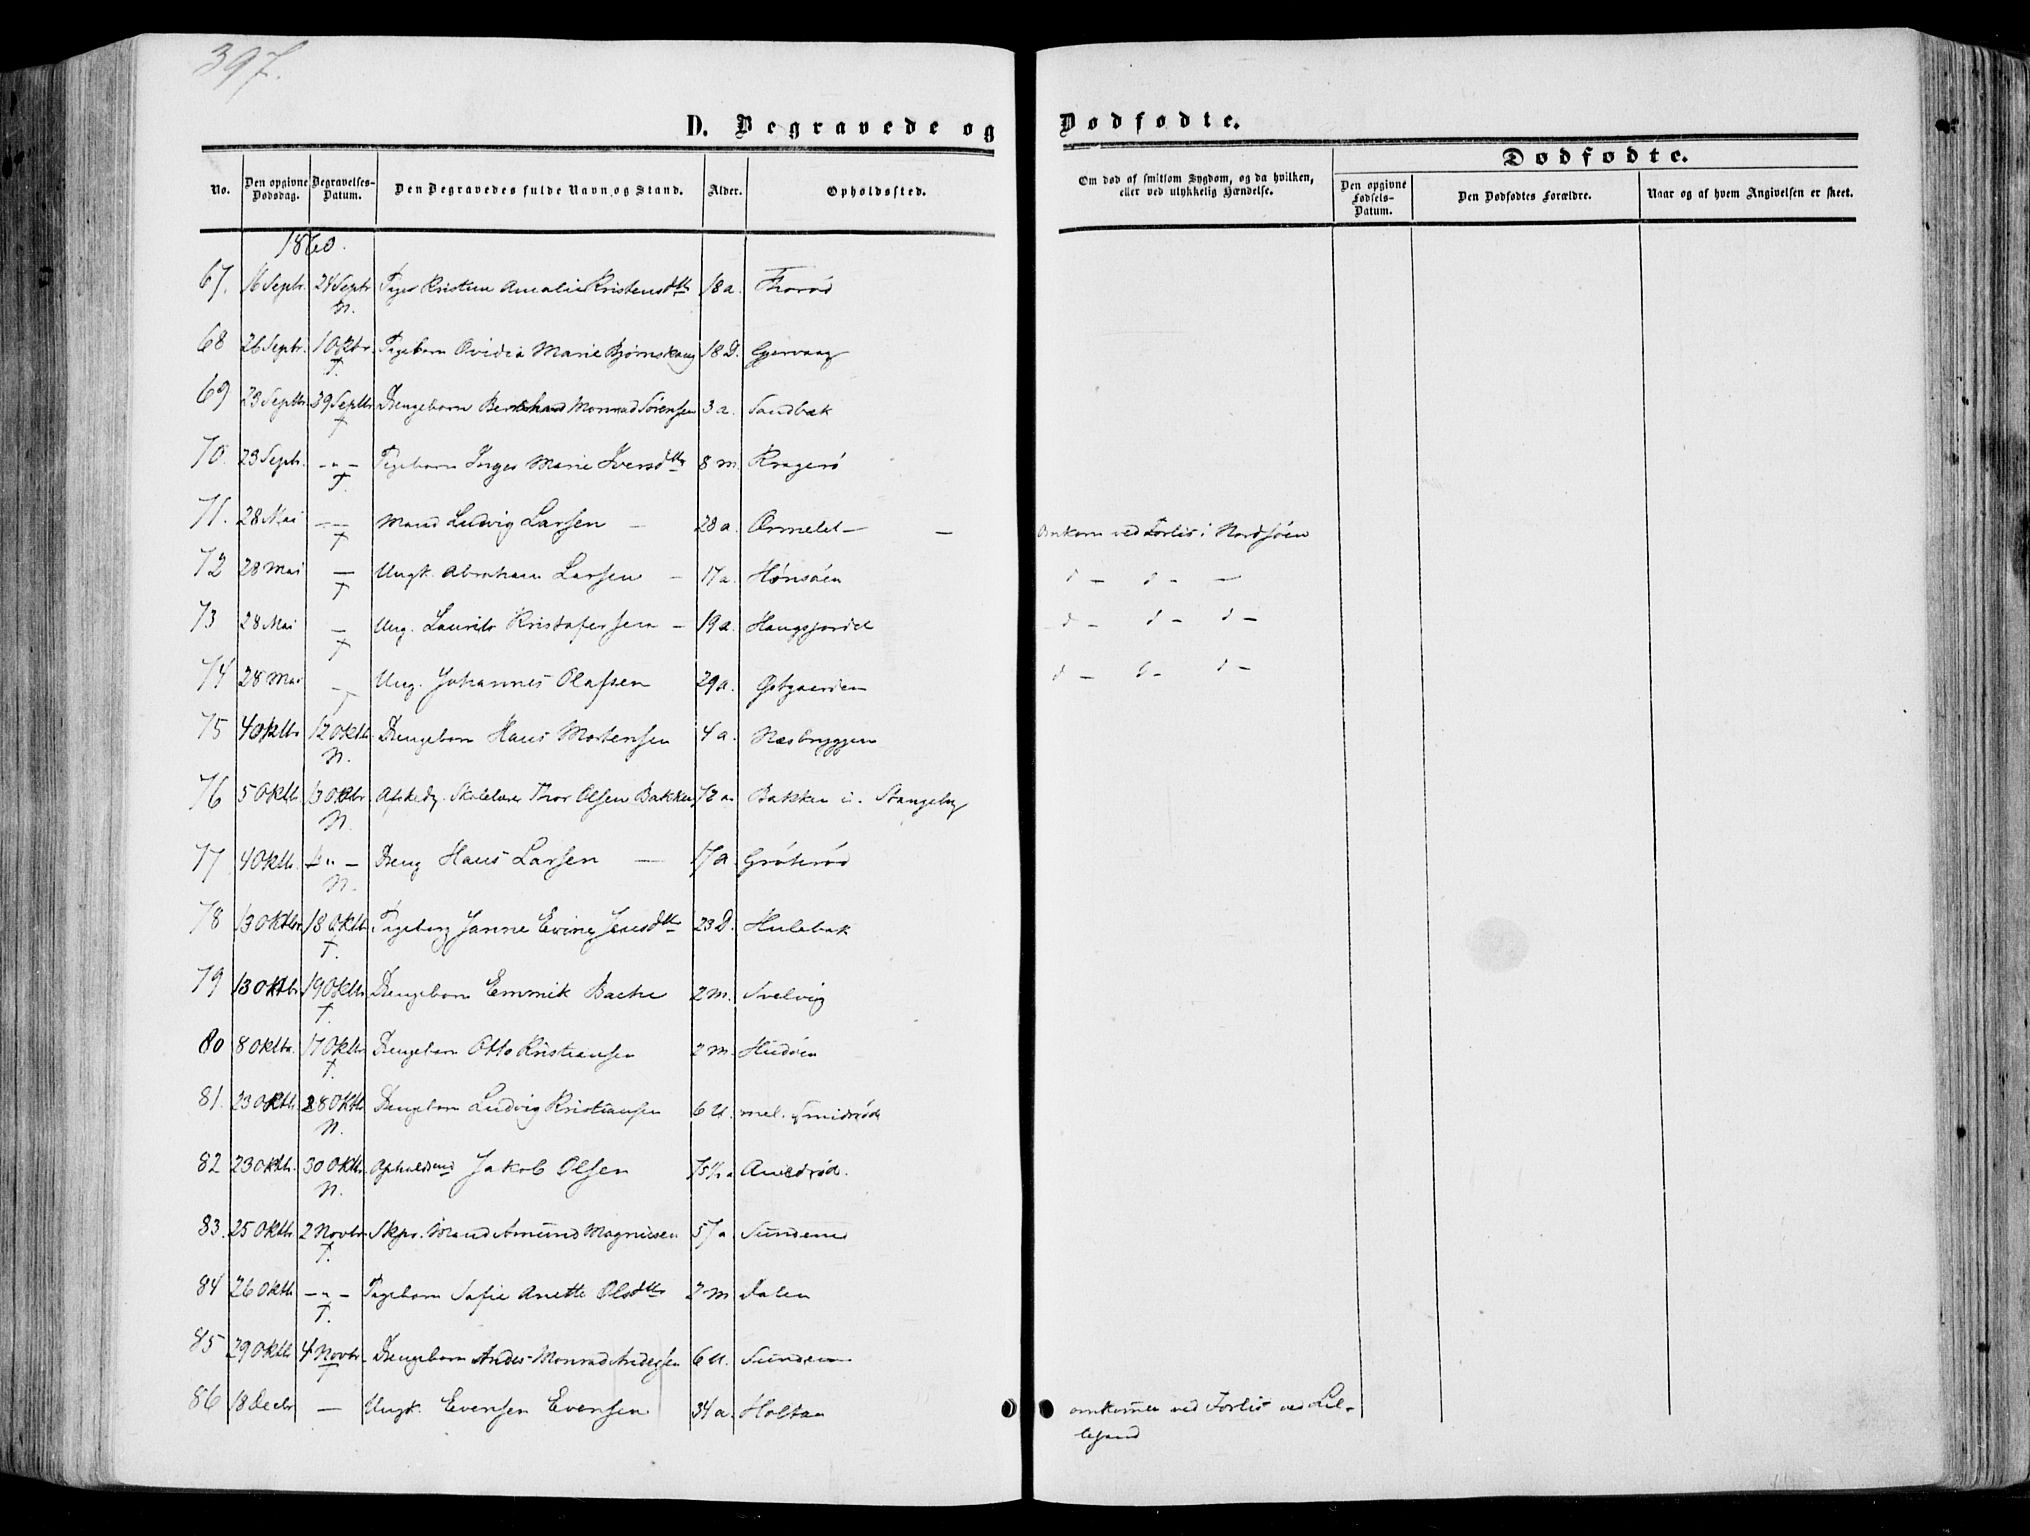 397.
D. Begravede og Dødfødte.
Dødfødte.
No. Den opgivne Dødsdag. Begravelses-Datum. Den Begravedes fulde Navn og Stand. Alder. Opholdssted. Om død af smitsom Sygdom, og da hvilken, eller ved ulykkelig Hændelse. Den opgivne Fødsels-Datum. Den Dødfødtes Forældre. Naar og af hvem Angivelsen er skeet.
1860.
67. 16 Septr. 24 Septr N. Kristine Amalie Kristensdtr 18 a. Thorød
68 26 Septr. 1 Oktbr. T. Pigebarn Ovidia Marie Bjørnskaug 18 D. Gjervaag
69 23 Septbr 29 Septbr T Drengebarn Bernhard Monrad Sörensen 3 a. Sandbæk
70. 23 Septr. - " - T. Pigebarn Inger Marie Iversdtr 8 m. Kragerö
71. 28 Mai - - T Mand Ludvig Larsen - 28 a. Ormelet - - Omkom ved Forlis i Nordsöen
72 28 Mai - T Ungk. Abraham Larsen - 17 a. Hönsöen d - d - -
73 28 Mai - T Ung. Laurits Kristofersen - 19 a. Haugsjordet d - d - d -
74 28 Mai - T Ung. Johannes Olafsen 29 a. d - d - d -
75 4 Oktbr 12 Oktbr N. Drengebarn Hans Mortensen 4 a. Næsbryggen
76 5 Oktbr 13 Oktbr N. Afskedg. Skolelærer Thor Olsen Bakken 72 a. Bakken i. Stangeby
77 4 Oktbr. - " - N. Dreng Hans Larsen - 17 a. Gröterød
78 13 Oktbr 18 Oktbr T. Janne Evine Jensdtr 23 D. Hulebak
79 13 Oktbr 19 Oktbr T. Drengebarn Emmik Bache 2 m. Svelvig
80 8 Oktbr. 17 Oktbr T. Drengebarn Otto Kristiansen 2 m. Hudöen
81. 23 Oktbr. 28 Oktbr N. Drengebarn Ludvig Kristiansen 6 U. mel. Smidsröd
82 23 Oktbr. 30 Oktbr. N. Jakob Olsen 75 ½ a
83. 25 Oktbr 2 Novbr T. Skps. Mand Amund Magnusen 57 a. Sundene
84 26 Oktbr - " - T. Pigebarn Sofie Anette Olsdtr 2 m Dalen
85 29 Oktbr 4 Novbr T Drengebarn Anders Monrad Andersen 6 U. Sundene
86 18 Decbr - Ungk. Evensen Evensen 34 a. Holtan omkommen ved Forlis ved Lil-
lesand